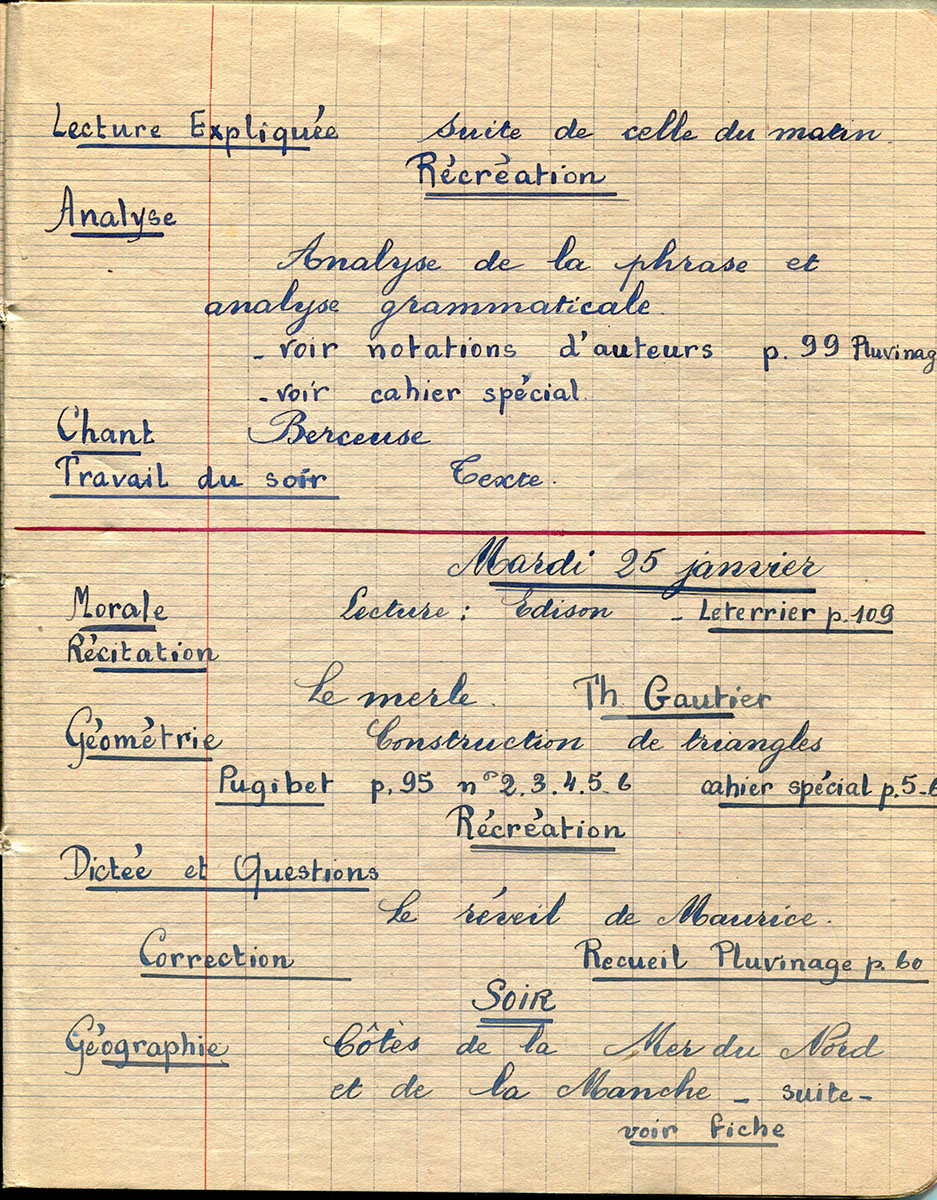 Lecture Expliquée suite de celle du matin.
Récréation
Analyse
Analyse de la phrase et
analyse grammaticale.
- voir notations d'auteurs p. 99 Pluvinag
- voir cahier spécial.
Chant Berceuse
Travail du soir Texte.
Mardi 25 janvier
Morale Lecture : Edison - Leterrier p. 109
Récitation
Le merle. Th. Gautier
Géométrie Construction de triangles
Pugibet p. 95 n° 2. 3. 4. 5. 6 cahier spécial p. 5-6
Récréation
Dictée et Questions
Le réveil de Maurice.
Correction Recueil Pluvinage p. 60
Soir
Géographie Côtes de la Mer du Nord
et de la Manche - suite -
voir fiche